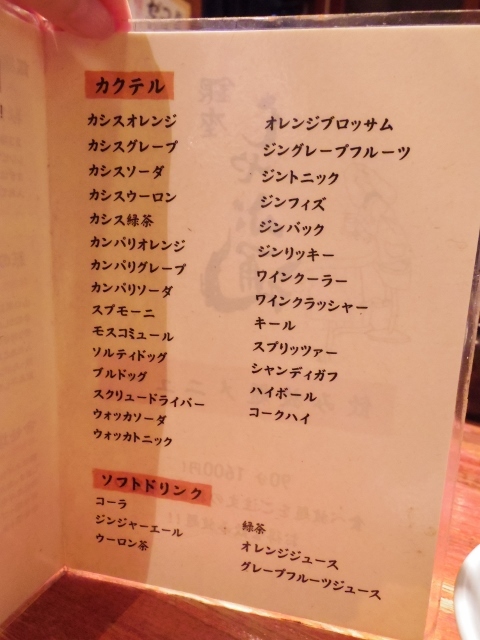 カクテル
カシスオレンジ
カシスグレープ
カシスソーダ
カシスウーロン
カシス緑茶
カンパリオレンジ
カンパリグレープ
カンパリソーダ
スプモーニ
モスコミュール
ソルティドッグ
ブルドッグ
スクリュードライバー
ウォッカソーダ
ウォッカトニック
オレンジブロッサム
ジングレープフルーツ
ジントニック
ジンフィズ
ジンバック
ジンリッキー
ワインクーラー
ワインクラッシャー
キール
スプリッツァー
シャンディガフ
ハイボール
コークハイ
ソフトドリンク
コーラ
ジンジャーエール
ウーロン茶
緑茶
オレンジジュース
グレープフルーツジュース